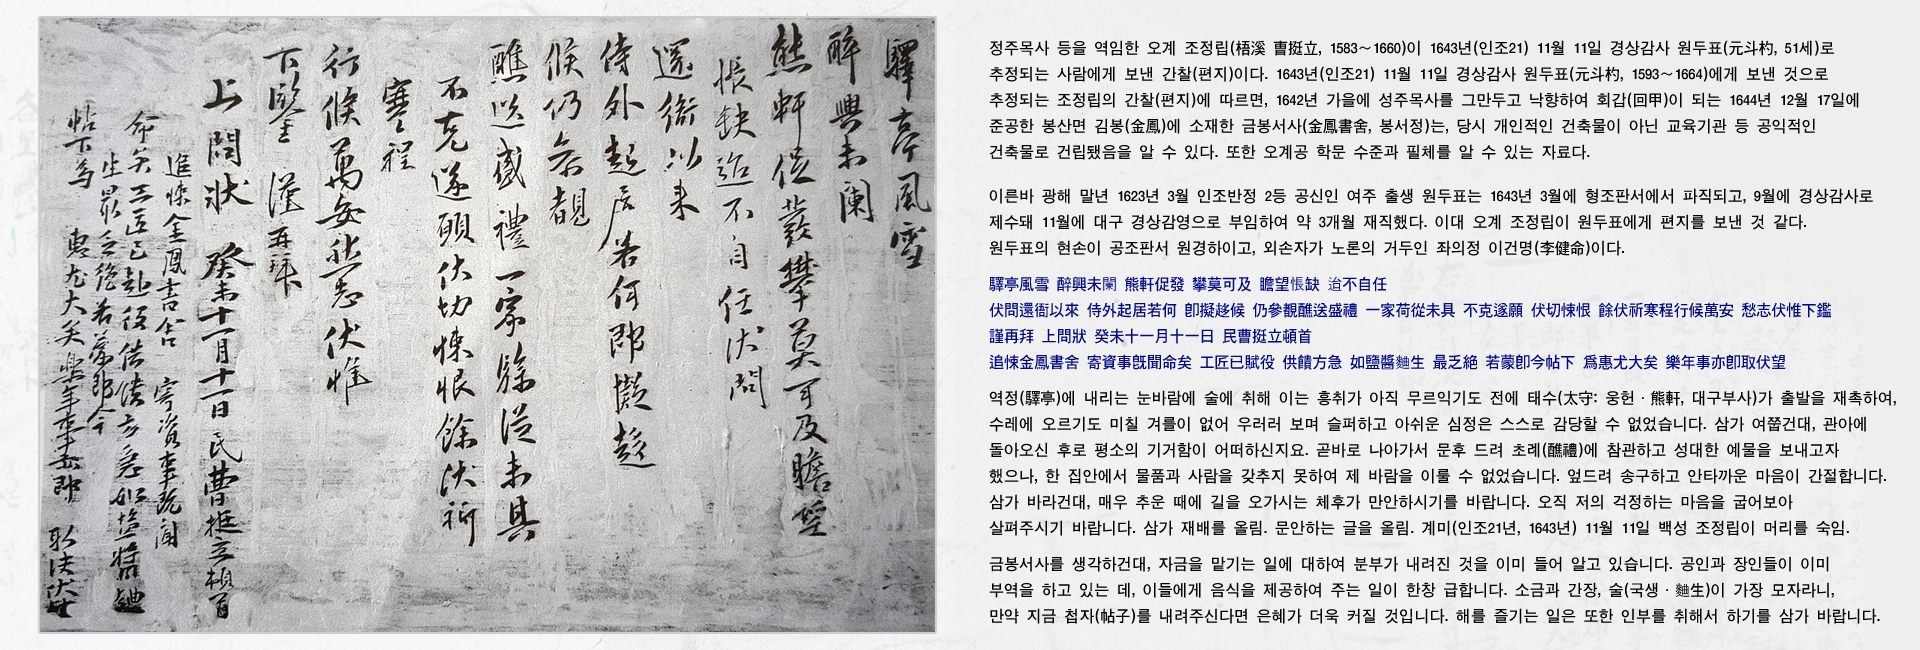 驛亭風雪
醉興未闌
熊軒促發攀莫可及瞻望
悵缺迨不自任伏問
還衙以來
侍外起居若何卽擬趍
候仍參覩
醮送盛禮一家 從未具
不克遂願伏切悚恨餘伏祈
寒程
行候萬安愁志伏惟
下鑒 謹再拜
上問狀 癸未十一月十一日 民曹挺立頓首
追悚金鳳書舍 寄資事旣聞
命矣工匠已赴役供饋方急如塩醬麯
生最乏絶若蒙卽今
帖下為 惠尤大矣樂年事亦卽 取伏望
정주목사 등을 역임한 오계 조정립(梧溪 曺挺立, 1583～1660)이 1643년(인조21) 11월 11일 경상감사 원두표(元斗杓, 51세)로
추정되는 사람에게 보낸 간찰(편지)이다. 1643년(인조21) 11월 11일 경상감사 원두표(元斗杓, 1593～1664)에게 보낸 것으로
추정되는 조정립의 간찰(편지)에 따르면, 1642년 가을에 성주목사를 그만두고 낙향하여 회갑(回甲)이 되는 1644년 12월 17일에
준공한 봉산면 김봉(金鳳)에 소재한 금봉서사(金鳳書舍, 봉서정)는, 당시 개인적인 건축물이 아닌 교육기관 등 공익적인
건축물로 건립됐음을 알 수 있다. 또한 오계공 학문 수준과 필체를 알 수 있는 자료다.
이른바 광해 말년 1623년 3월 인조반정 2등 공신인 여주 출생 원두표는 1643년 3월에 형조판서에서 파직되고, 9월에 경상감사로
제수돼 11월에 대구 경상감영으로 부임하여 약 3개월 재직했다. 이대 오계 조정립이 원두표에게 편지를 보낸 것 같다.
원두표의 현손이 공조판서 원경하이고, 외손자가 노론의 거두인 좌의정 이건명(李健命)이다.
驛亭風雪 醉興未闌 熊軒促發 攀莫可及 瞻望悵缺 迨不自任
伏問還衙以來 侍外起居若何 卽擬趍候 仍參覩醮送盛禮 一家荷從未具 不克遂願 伏切悚恨 餘伏祈寒程行候萬安 愁志伏惟下鑑
謹再拜 上問狀 癸未十一月十一日 民曹挺立頓首
追悚金鳳書舍 寄資事旣聞命矣 工匠已賦役 供饋方急 如鹽醬麯生 最乏絶 若蒙卽今帖下 爲惠尤大矣 樂年事亦卽取伏望
역정(驛亭)에 내리는 눈바람에 술에 취해 이는 흥취가 아직 무르익기도 전에 태수(太守: 웅헌 · 熊軒, 대구부사)가 출발을 재촉하여,
수레에 오르기도 미칠 겨를이 없어 우러러 보며 슬퍼하고 아쉬운 심정은 스스로 감당할 수 없었습니다. 삼가 여쭙건대, 관아에
돌아오신 후로 평소의 기거함이 어떠하신지요. 곧바로 나아가서 문후 드려 초례(醮禮)에 참관하고 성대한 예물을 보내고자
했으나, 한 집안에서 물품과 사람을 갖추지 못하여 제 바람을 이룰 수 없었습니다. 엎드려 송구하고 안타까운 마음이 간절합니다.
삼가 바라건대, 매우 추운 때에 길을 오가시는 체후가 만안하시기를 바랍니다. 오직 저의 걱정하는 마음을 굽어보아
살펴주시기 바랍니다. 삼가 재배를 올림. 문안하는 글을 올림. 계미(인조21년, 1643년) 11월 11일 백성 조정립이 머리를 숙임.
금봉서사를 생각하건대, 자금을 맡기는 일에 대하여 분부가 내려진 것을 이미 들어 알고 있습니다. 공인과 장인들이 이미
부역을 하고 있는 데, 이들에게 음식을 제공하여 주는 일이 한창 급합니다. 소금과 간장, 술(국생 · 麯生)이 가장 모자라니,
만약 지금 첩자(帖子)를 내려주신다면 은혜가 더욱 커질 것입니다. 해를 즐기는 일은 또한 인부를 취해서 하기를 삼가 바랍니다.